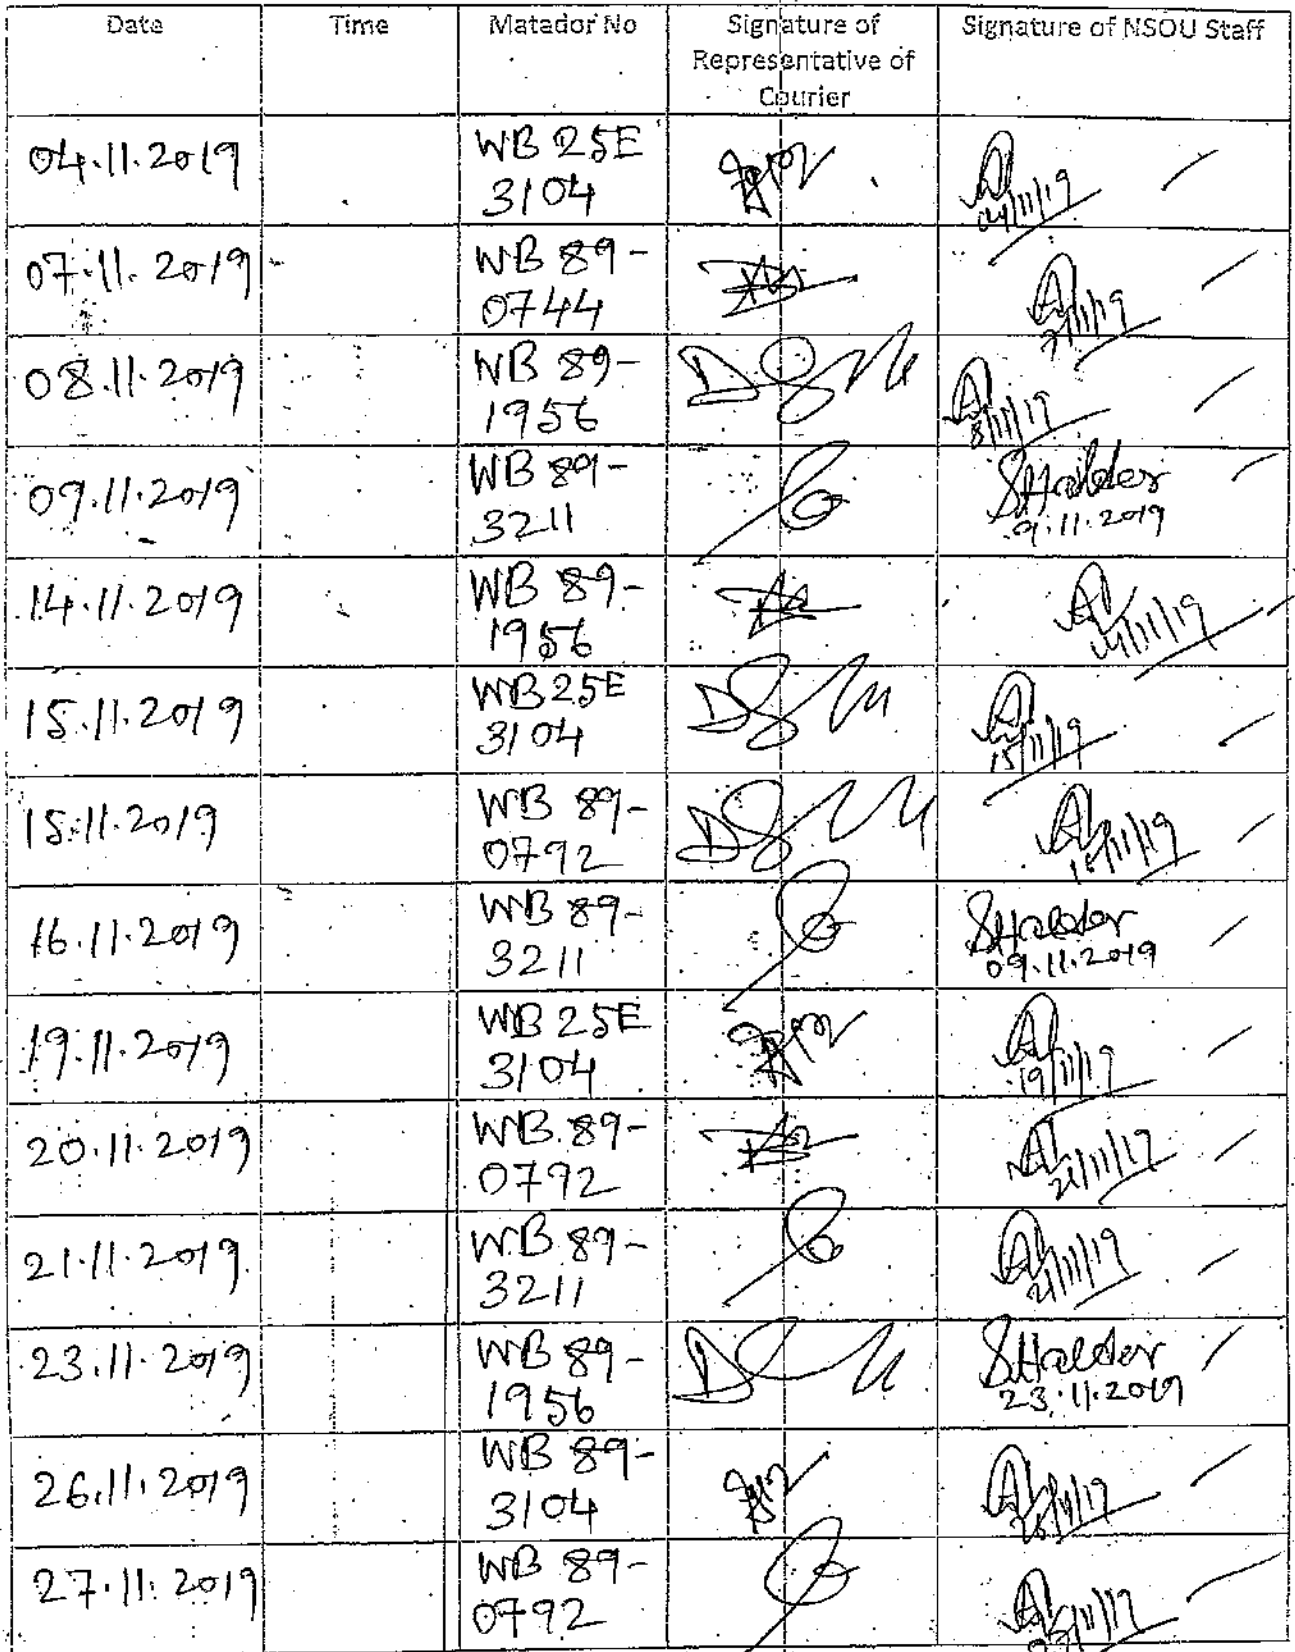 Date Time Matador No Signature of Signature of NSOU Staff
Representative of
Courier
04.11.2019 WB 25E
3104
04/11/19
07.11.2019 WB 89-
0744
7/11/19
08.11.2019 WB 89-
1956
8/11/19
09.11.2019 WB 89- SHalder
3211 9.11.2019
14.11.2019 WB 89-
1956
14/11/19
15.11.2019 WB 25E
3104
15/11/19
15.11.2019 WB 89-
0792
15/11/19
16.11.2019 WB 89- SHalder
3211 09.11.2019
19.11.2019 WB 25E
3104
19/11/19
20.11.2019 WB 89-
0792
21.11.2019 WB 89-
3211
21/11/19
23.11.2019 WB 89- SHalder
1956 23.11.2019
26.11.2019 WB 89-
3104
27.11.2019 WB 89-
0792